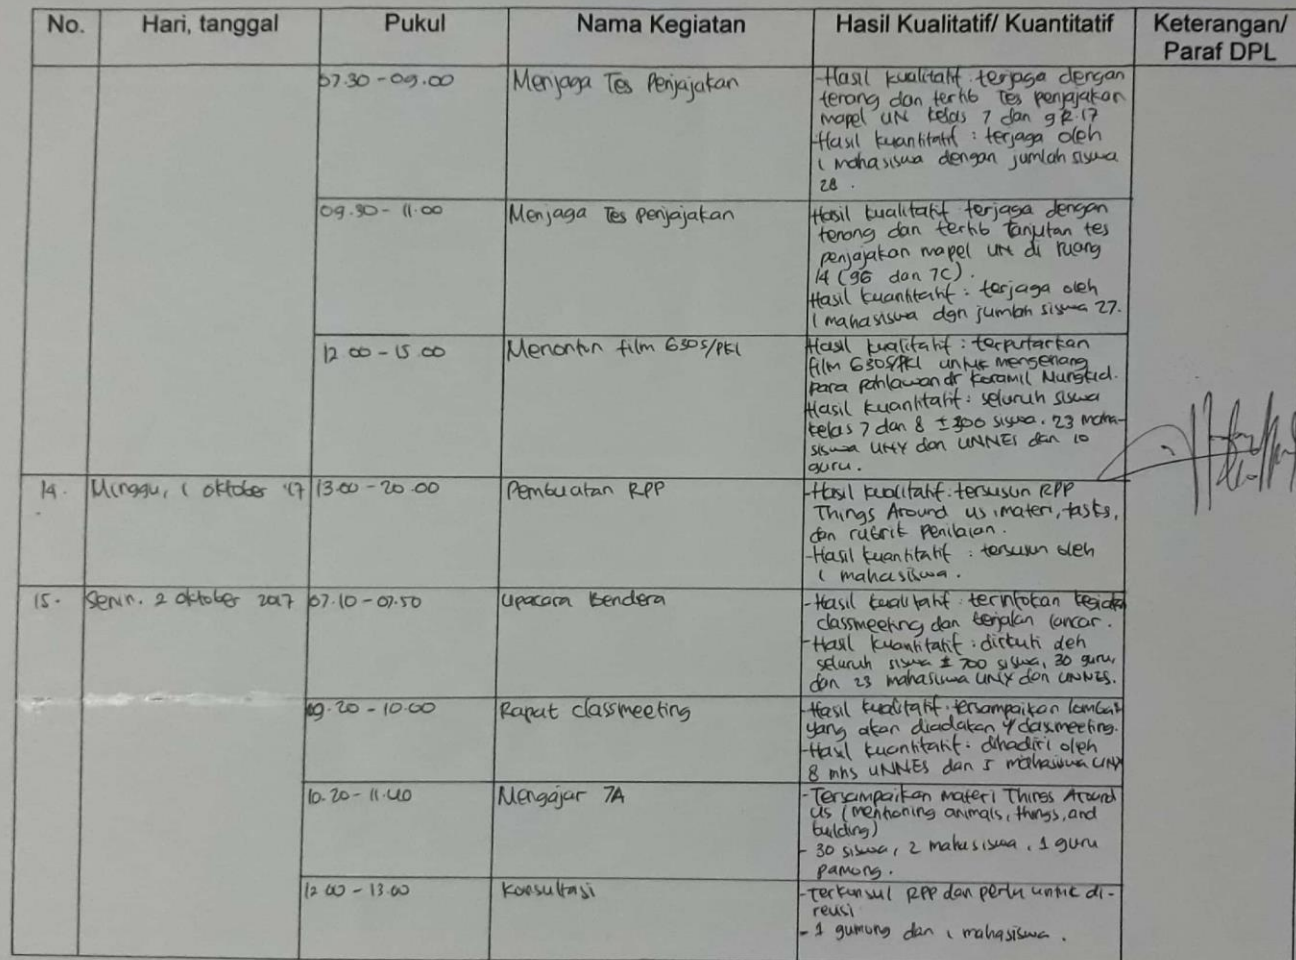 No. Hari, tanggal Pukul Nama Kegiatan Hasil Kualitatif/ Kuantitatif Keterangan/
Paraf DPL
07.30 - 09.00 Menjaga Tes Penjajakan -Hasil kualitatif : terjaga dengan
terang dan tertib Tes penjajakan
mapel UN kelas 7 dan 9 R.17
-Hasil kuantitatif : terjaga oleh
1 mahasiswa dengan jumlah siswa
28 .
09.30 - 11.00 Menjaga Tes penjajakan Hasil kualitatif terjaga dengan
terang dan tertib lanjutan tes
penjajakan mapel UN di ruang
14 (9G dan 7C) .
Hasil kuantitatif : terjaga oleh
1 mahasiswa dgn jumlah siswa 27.
12.00 - 15.00 Menonton film G30S/PKI Hasil kualitatif : terputarkan
film G30S/PKI untuk mengenang
para pahlawan dr Koramil Mungkid.
Hasil kuantitatif : seluruh siswa
kelas 7 dan 8 ± 300 siswa. 23 maha-
siswa UNY dan UNNES dan 10
guru .
14. Minggu, 1 Oktober '17 13.00 - 20.00 Pembuatan RPP -Hasil kualitatif : tersusun RPP
Things Around us , materi, tasks,
dan rubrik penilaian .
-Hasil kuantitatif : tersusun oleh
1 mahasiswa .
15. Senin, 2 Oktober 2017 07.10 - 07.50 Upacara Bendera -Hasil kualitatif : terinfokan kegiatan
classmeeting dan berjalan lancar .
-Hasil kuantitatif : diikuti oleh
seluruh siswa ± 700 siswa, 30 guru,
dan 23 mahasiswa UNY dan UNNES.
09.20 - 10.00 Rapat classmeeting -Hasil kualitatif : tersampaikan lomba
yang akan diadakan classmeeting.
-Hasil kuantitatif : dihadiri oleh
8 mhs UNNES dan 5 mahasiswa UNY
10.20 - 11.40 Mengajar 7A - Tersampaikan materi Things Around
us (mentioning animals, things, and
building)
- 30 siswa, 2 mahasiswa , 1 guru
pamong .
12.00 - 13.00 Konsultasi -Terkonsul RPP dan perlu untuk di-
revisi
- 1 gumong dan 1 mahasiswa .